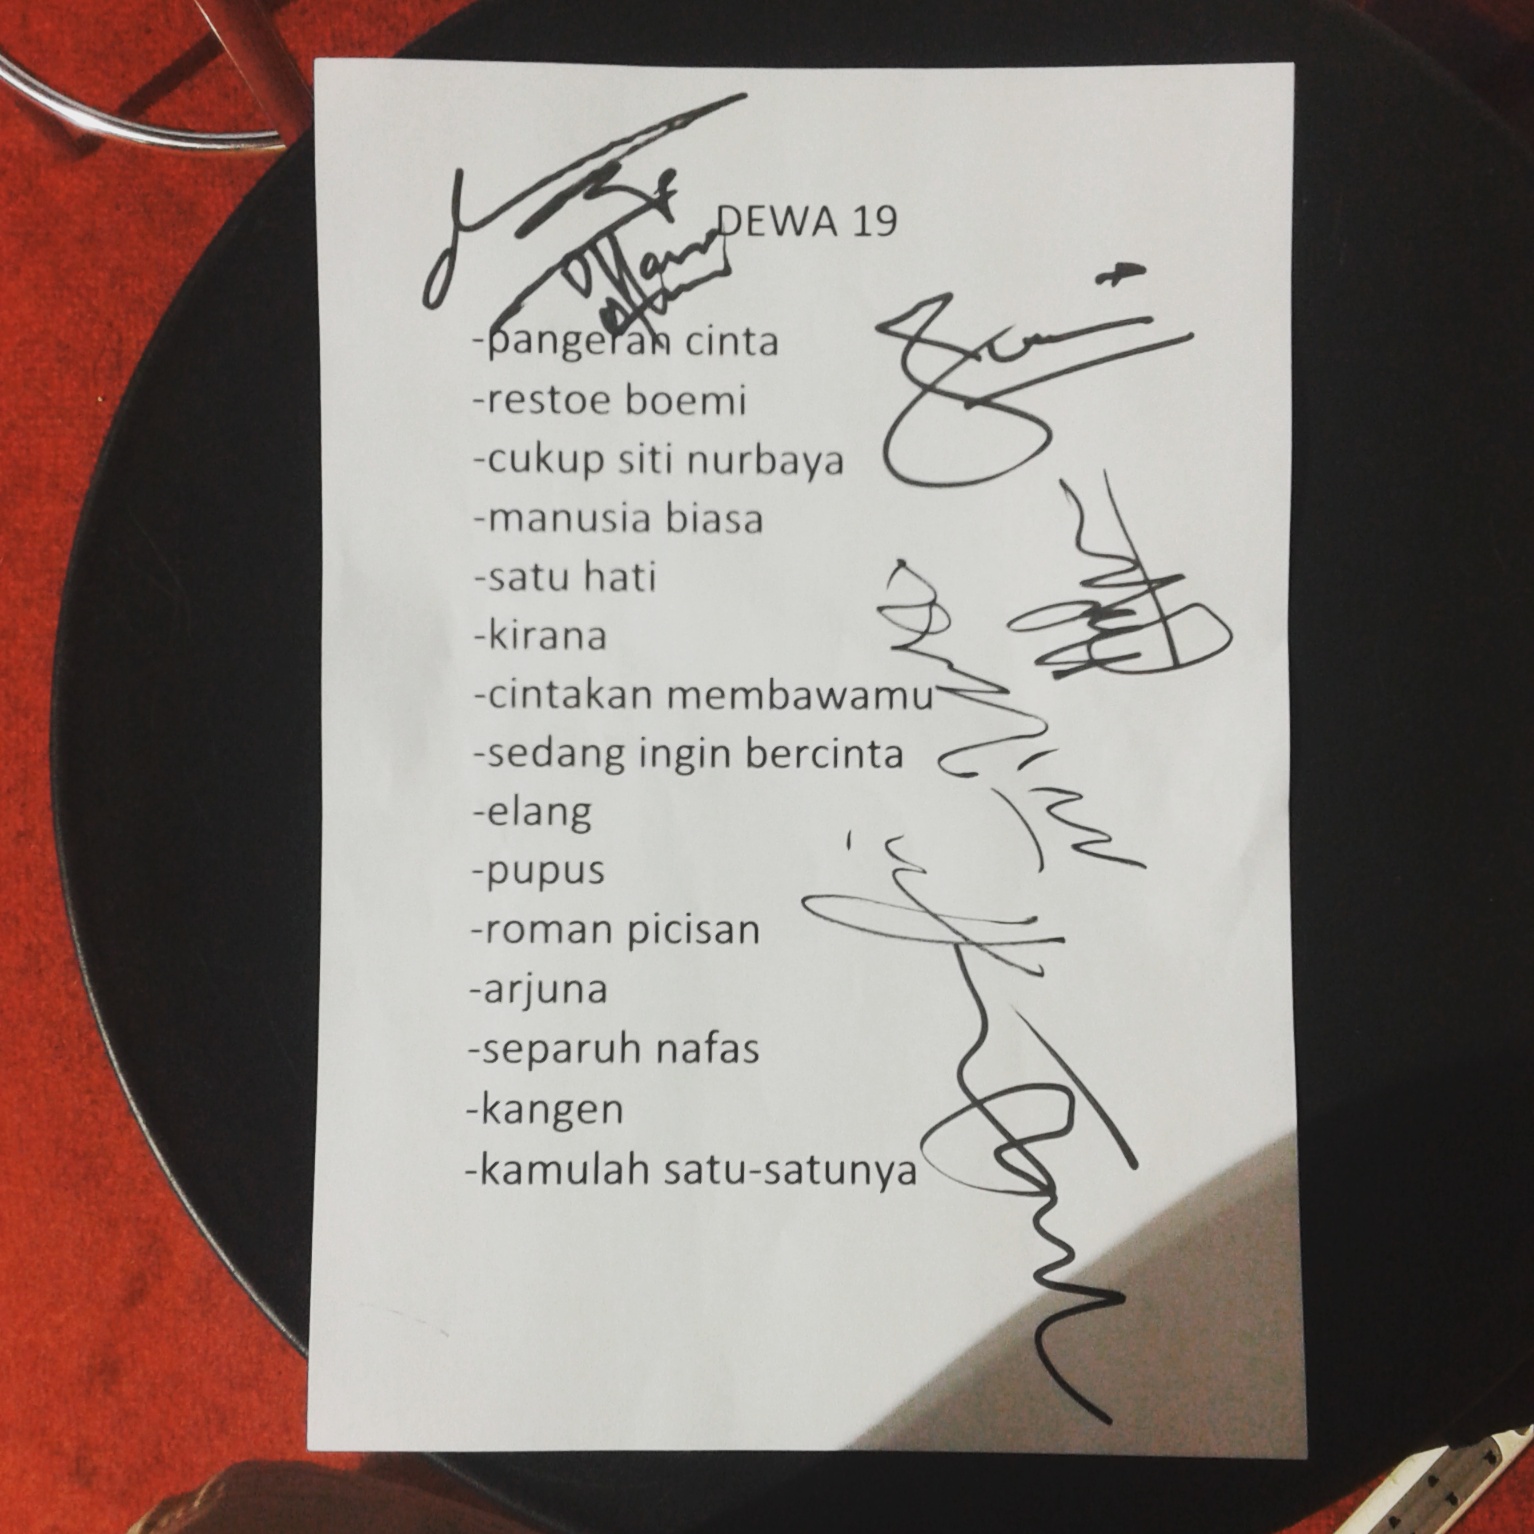 DEWA 19
-pangeran cinta
-restoe boemi
-cukup siti nurbaya
-manusia biasa
-satu hati
-kirana
-cintakan membawamu
-sedang ingin bercinta
-elang
-pupus
-roman picisan
-arjuna
-separuh nafas
-kangen
-kamulah satu-satunya